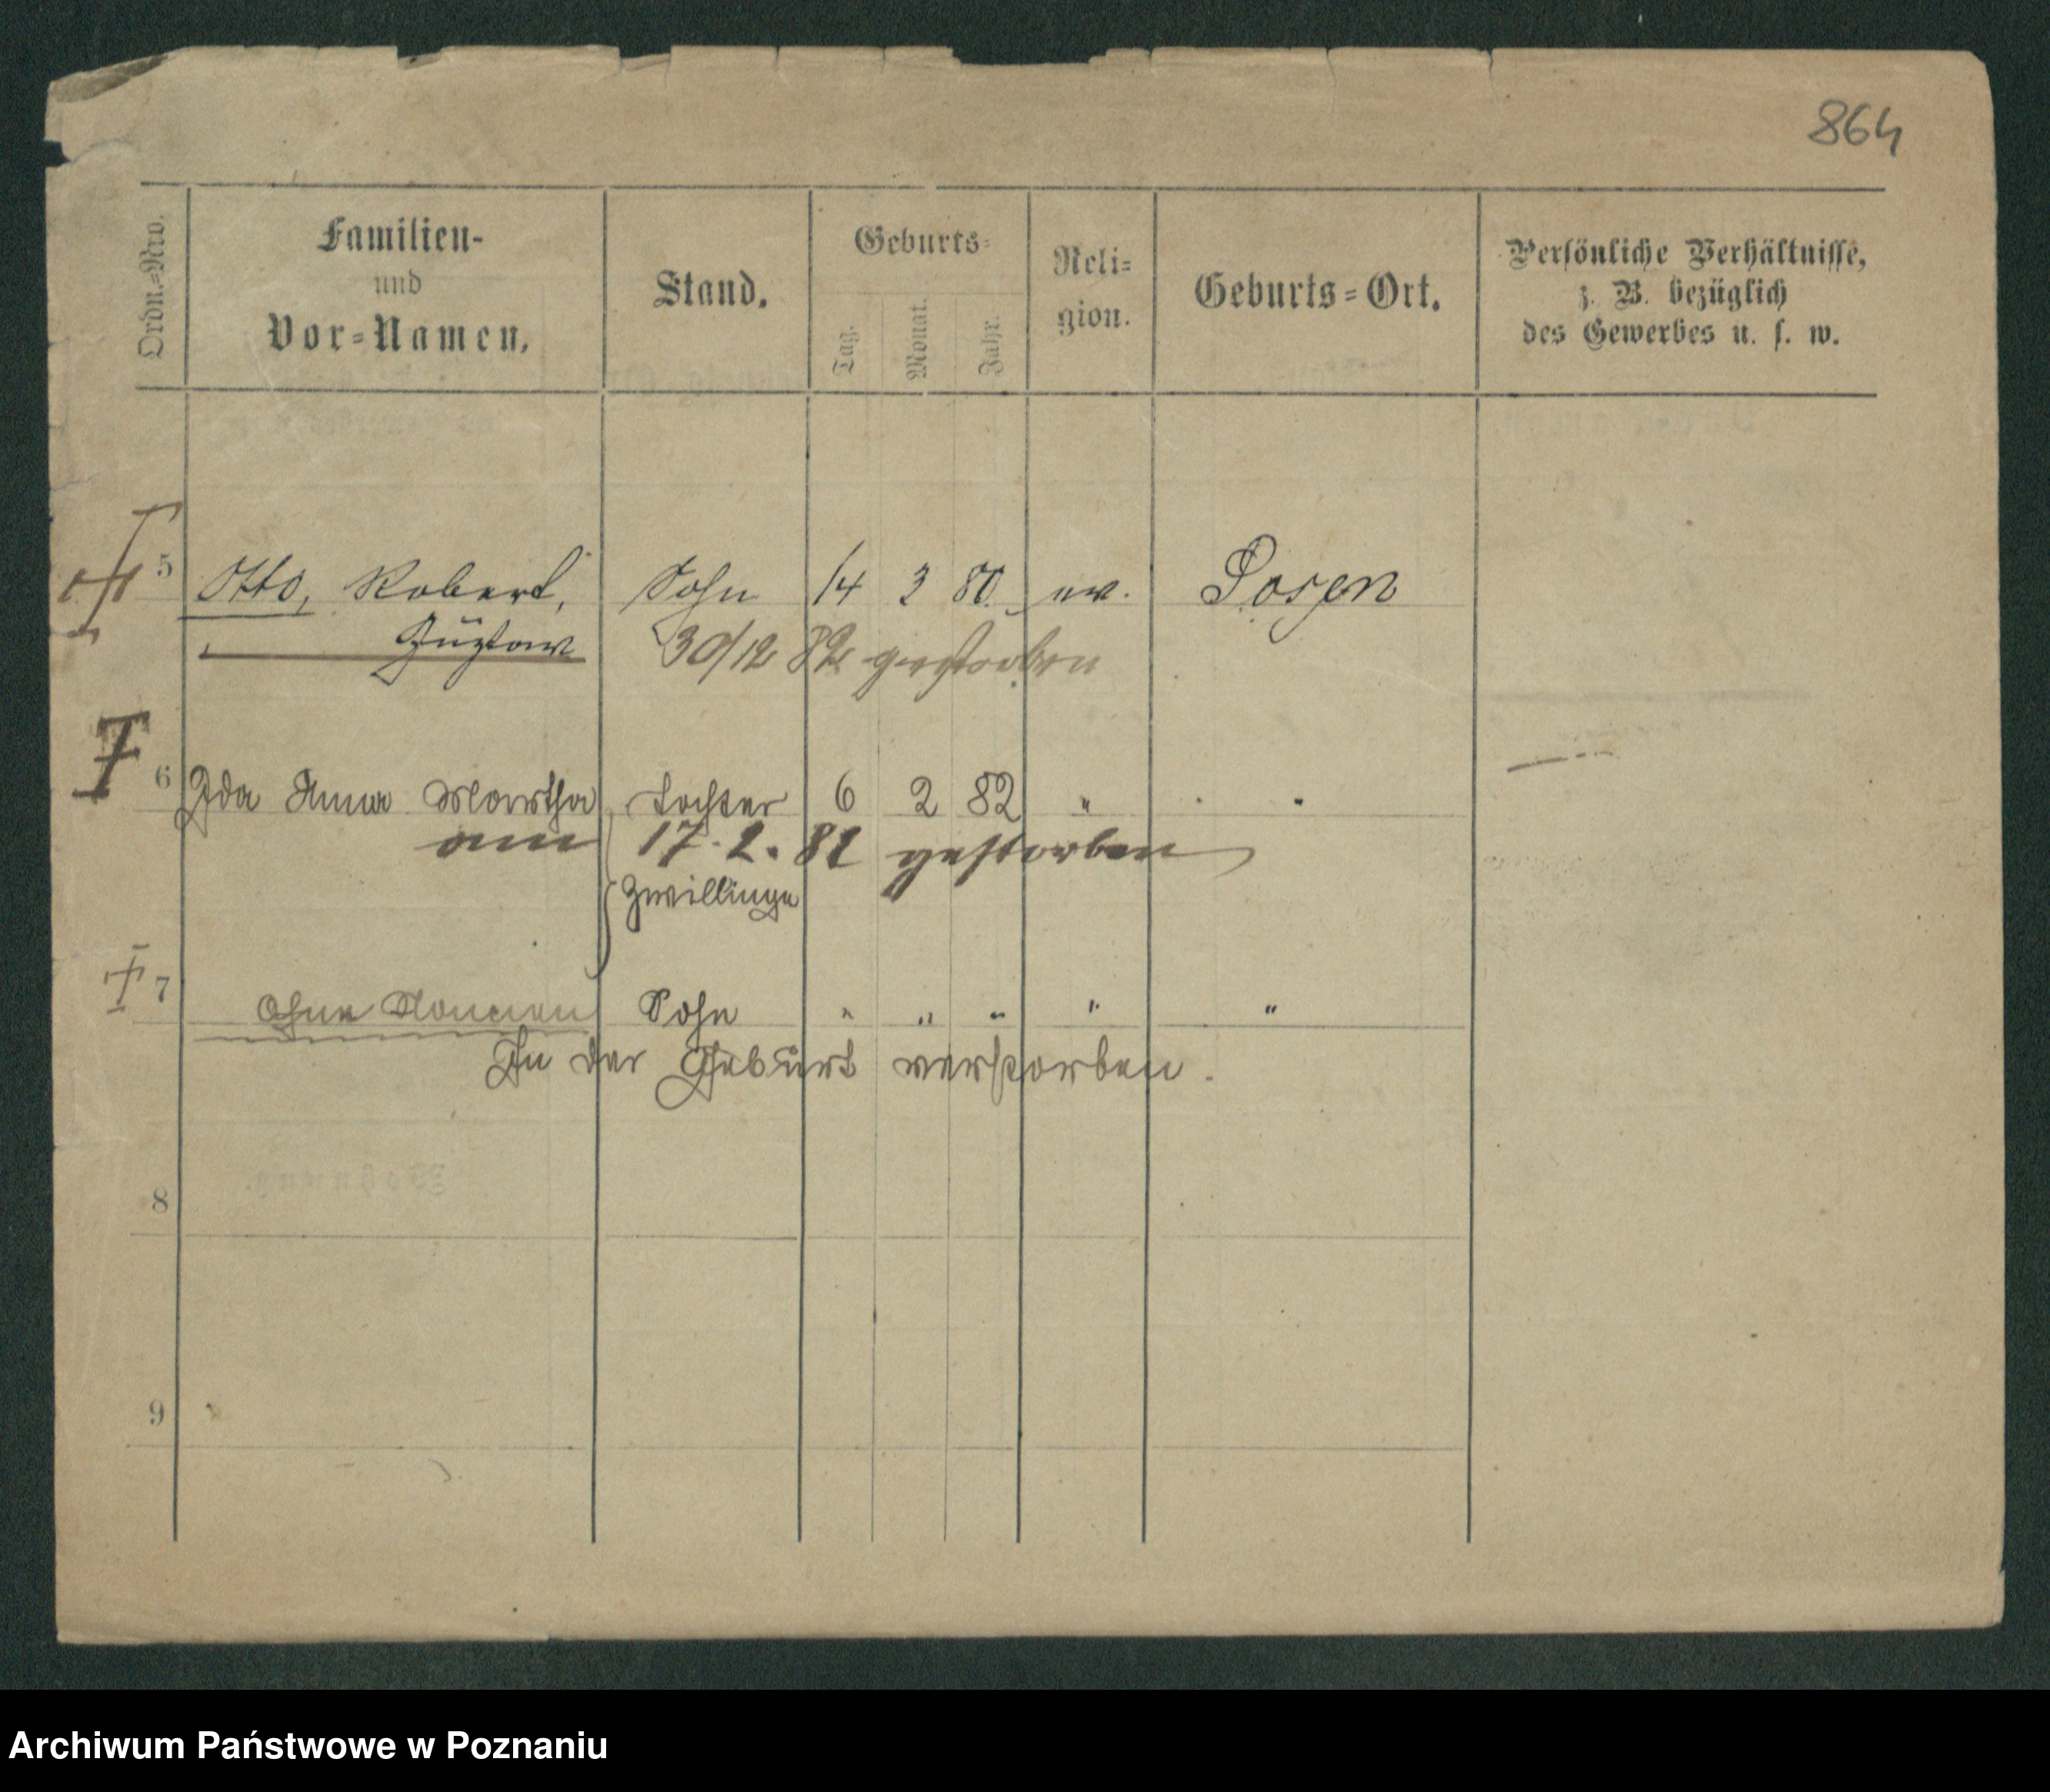 864
Ordn.-Nro.
Familien-
und
Vor-Namen.
Stand.
Geburts-
Tag.
Monat.
Jahr.
Reli-
gion.
Geburts-Ort.
Persönliche Verhältnisse,
z. B. bezüglich
des Gewerbes u. s. w.
5 Otto, Robert, Sohn 14 3 80. ev. Posen
Gustav 30/12 82 gestorben
6 Ida Anna Martha Tochter 6 2 82 " " "
am 17. 2. 82 gestorben
Zwillinge
7 Ohne Namen Sohn " " " " "
In der Geburt verstorben.
8
9
Archiwum Państwowe w Poznaniu